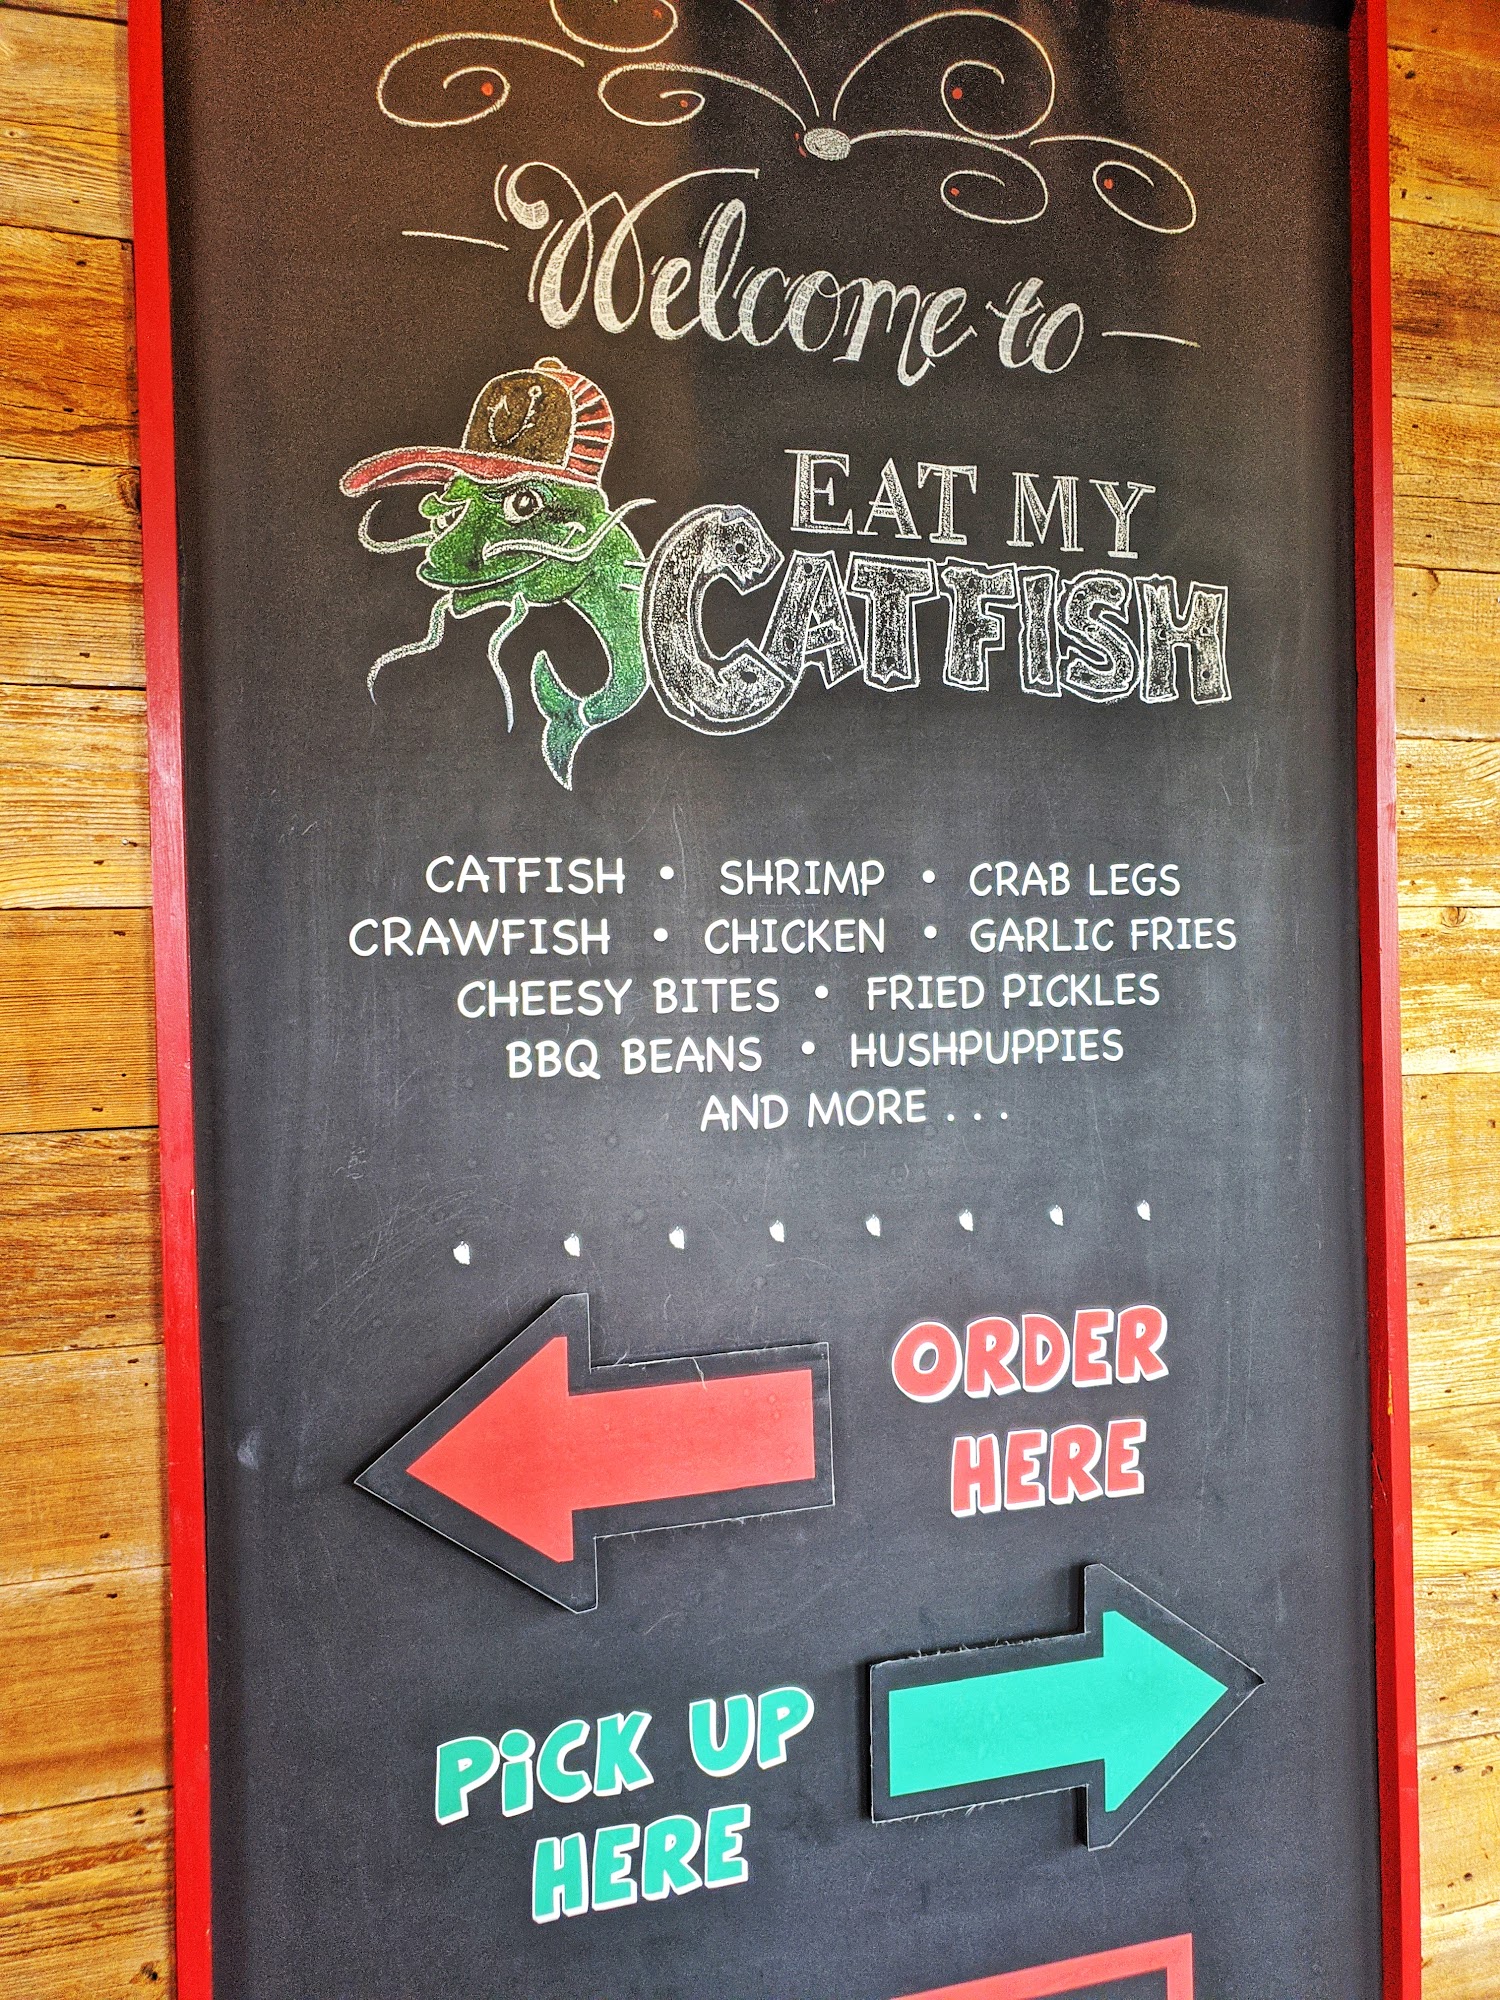 Welcome to
EAT MY
CATFISH
CATFISH • SHRIMP • CRAB LEGS
CRAWFISH • CHICKEN • GARLIC FRIES
CHEESY BITES • FRIED PICKLES
BBQ BEANS • HUSHPUPPIES
AND MORE . . .
ORDER
HERE
PiCK UP
HERE